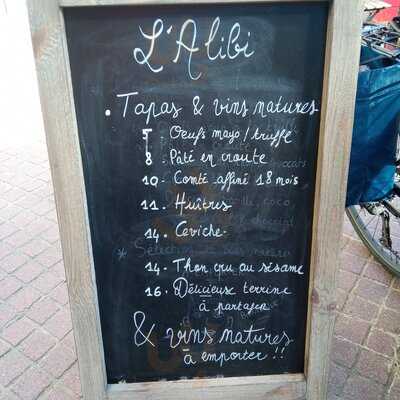 L'Alibi
. Tapas & vins natures
5 . Oeufs mayo / truffe
8 . Pâté en croute
10 . Comté affiné 18 mois
11 . Huîtres
14 . Ceviche
14 . Thon cru au sésame
16 . Délicieuse terrine
à partager
& vins natures
à emporter !!